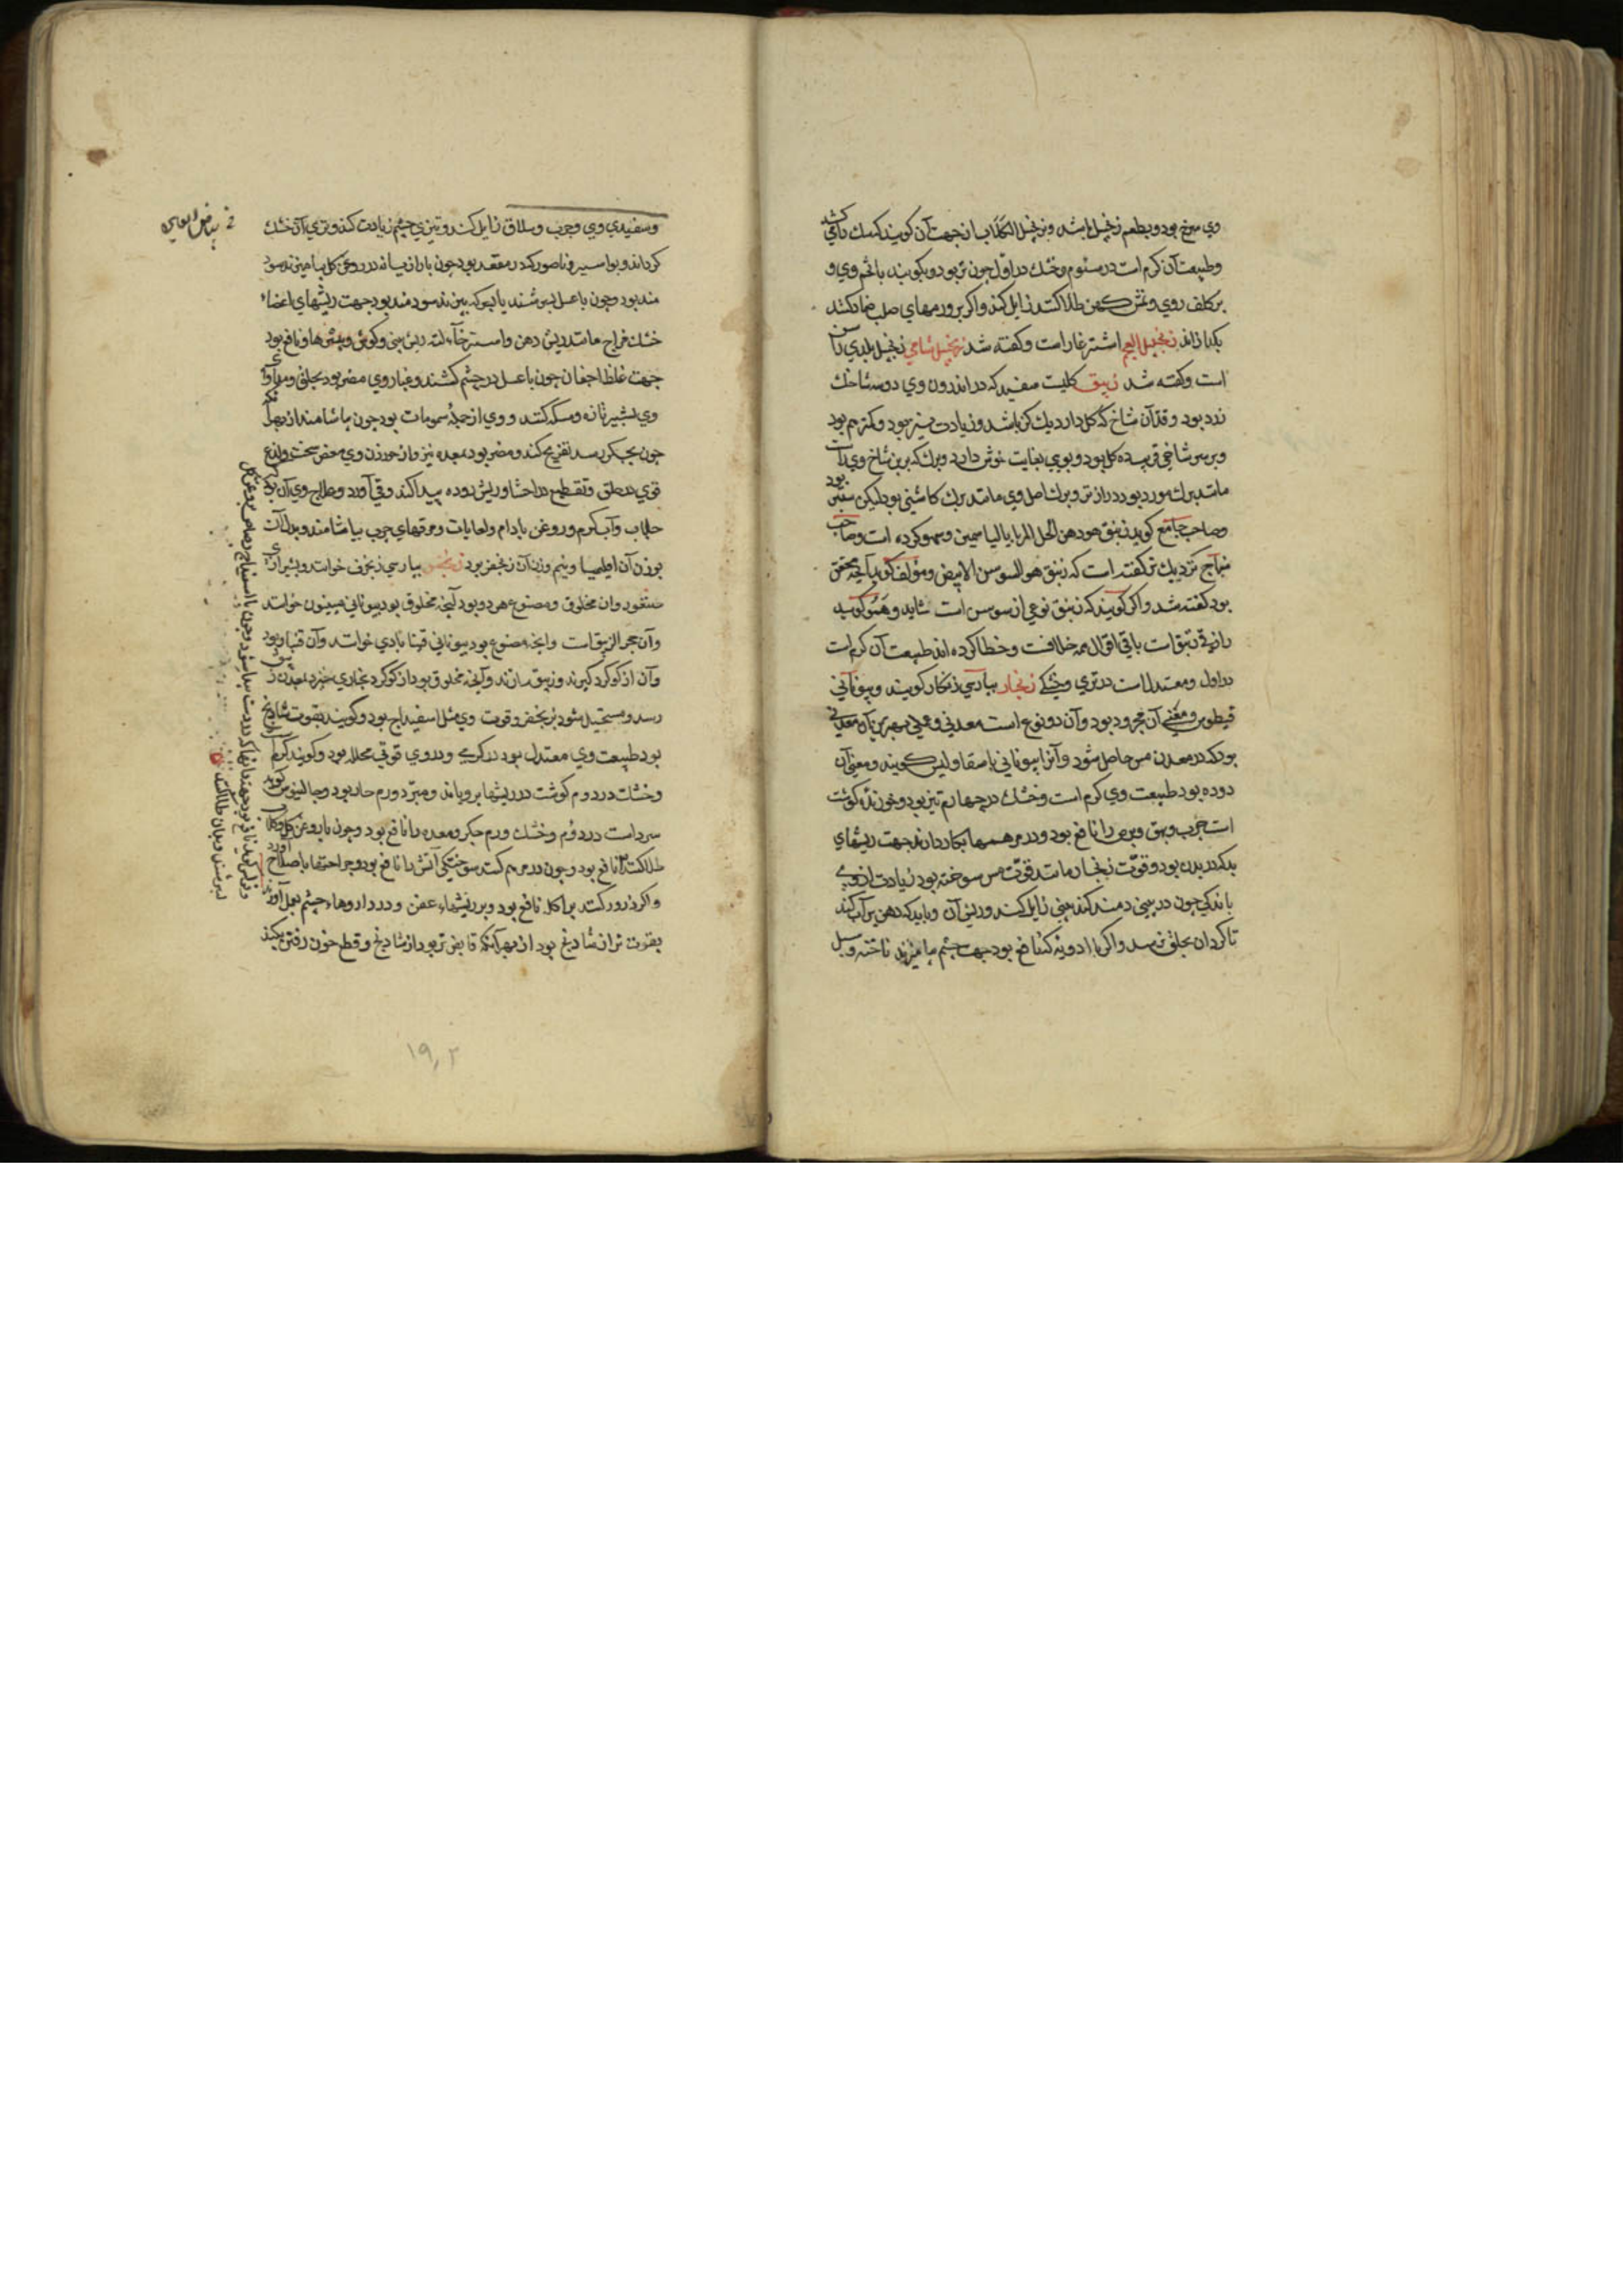 وی سرخ بود و بطعم زنجبیل باشد و زنجبیل الکلاب از جهت آن کویند که سک را می کشد
و طبیعت آن کرم است در سئوم و خشک در اول چون تر بود و بکوبند با تخم وی و
بر کلف روی و نمش کهن طلا کنند زایل کند و اکر بر ورمهای صلب ضماد کنند
بکدازاند زنجبیل العجم اشترغاز است و کفته شد زنجبیل شامی زنجبیل بلدی راسن
است و کفته شد زنبق کلیست سفید که در اندرون وی دو سه شاخک
زرد بود و قد آن شاخ که کل دارد یک کز باشد و زیادت نیز بود و کمتر هم بود
و بر سر شاخی قرب ده کل بود و بوی بغایت خوش دارد و برک که برین شاخ وی است
مانند برک مورد بود درازتر و برک اصل وی مانند برک کاسنی بود لیکن سبزتر بود
و صاحب جامع کوید زنبق هو دهن الحل المربا بالیاسمین و سهو کرده است و صاحب
منهاج نزدیک تر کفته است که زنبق هو السوسن الابیض و مؤلف کوید آنچه محقق
بود کفته شد و اکر کویند که زنبق نوعی از سوسن است شاید و هم کویند
رازقی زنبق است باقی اقوال همه خلافست و خطا کرده اند طبیعت آن کرم است
در اول و معتدل است در تری و خشکی زنجار بپارسی زنکار کویند و بیونانی
قیطوس و معنی آن مجرود بود و آن دو نوع است معدنی و عملی بهترین آن معدنی
بود که در معدن مس حاصل شود و آنرا بیونانی باسقاولیس کویند و معنی آن
دوده بود طبیعت وی کرم است و خشک در چهارم تیز بود و خورنده کوشت
است جرب و بهق و برص را نافع بود و در مرهمها بکار دارند جهت ریشهای
بد که در بدن بود و قوّت زنجار مانند قوّت مس سوخته بود زیادت از وی
باندکی چون در بینی دمند کند بینی زایل کند و ریش آن و باید که دهن پر آب کند
تا کرد آن بحلق نرسد و اکر با ادویه کنند نافع بود جهت چشم بیامیزند ناخنه و سبل
و سفیدی وی و جرب و سلاق زایل کند و تیزی چشم زیادت کند و تری آن خشک
کرداند و بواسیر و ناصور که در مقعد بود چون با رازیانه در روغن کل بیامیزند سود
مند بود و چون با عسل بسرشند یا بسرکه بپزند سودمند بود جهت ریشهای اعضاء
خشک مزاج مانند ریش دهن و استرخاء لثه ریش بینی و کوش و بثرها و نافع بود
جهت غلظ اجفان چون با عسل در چشم کشند و غبار وی مضر بود بحلق و
وی بشیر تازه و مسکه کنند و وی از جملهٔ سمومات بود چون بیاشامند از بهر آنکه
چون بجکر رسد تفریح کند و مضر بود بمعده نیز و از خوردن وی مغص سخت و لذع
قوی در حلق و تقطیع در احشا و ریش روده پیدا کند و قی آورد و علاج وی آن بود که
جلاب و آب کرم و روغن بادام و لعابات و مرقهای چرب بیاشامند و بدل آن
بوزن آن اقلیمیا و نیم وزن آن زنجفر بود زنجفر بپارسی زنجرف خوانند و بشیرازی
سنقود و آن مخلوق و مصنوع هر دو بود آنچه مخلوق بود بیونانی مینون خوانند
و آن حجر الزیبق است و آنچه مصنوع بود بیونانی قینا باری خوانند و آن قنبار بود
و آن از کوکرد کیرند و زیبق سازند و آنچه مخلوق بود از کوکرد بخاری خیزد بمعدن زیبق
رسد و مستحیل شود بزنجفر و قوت وی مثل اسفیداج بود و کویند بقوت شادنج
بود طبیعت وی معتدل بود در کرمی و در وی قوتی محلله بود و کویند کرم است
و خشک در دوم کوشت در ریشها برویاند و مبرّد ورم حار بود و جالینوس کوید
سرد است در دوم و خشک ورم جکر و معده را نافع بود و چون با روغن کل
طلا کنند نافع بود و چون در مرهم کنند سوختکی آتش را نافع بود و جراحتها باصلاح آورد
و اکر ذرور کنند بر آکله نافع بود و بر ریشهاء عفن و در داروهاء چشم بعمل آورند
بقوت تر از شادنج بود از بهر آنکه قابض تر بود از شادنج و قطع خون رفتن بکند
۱۹۲